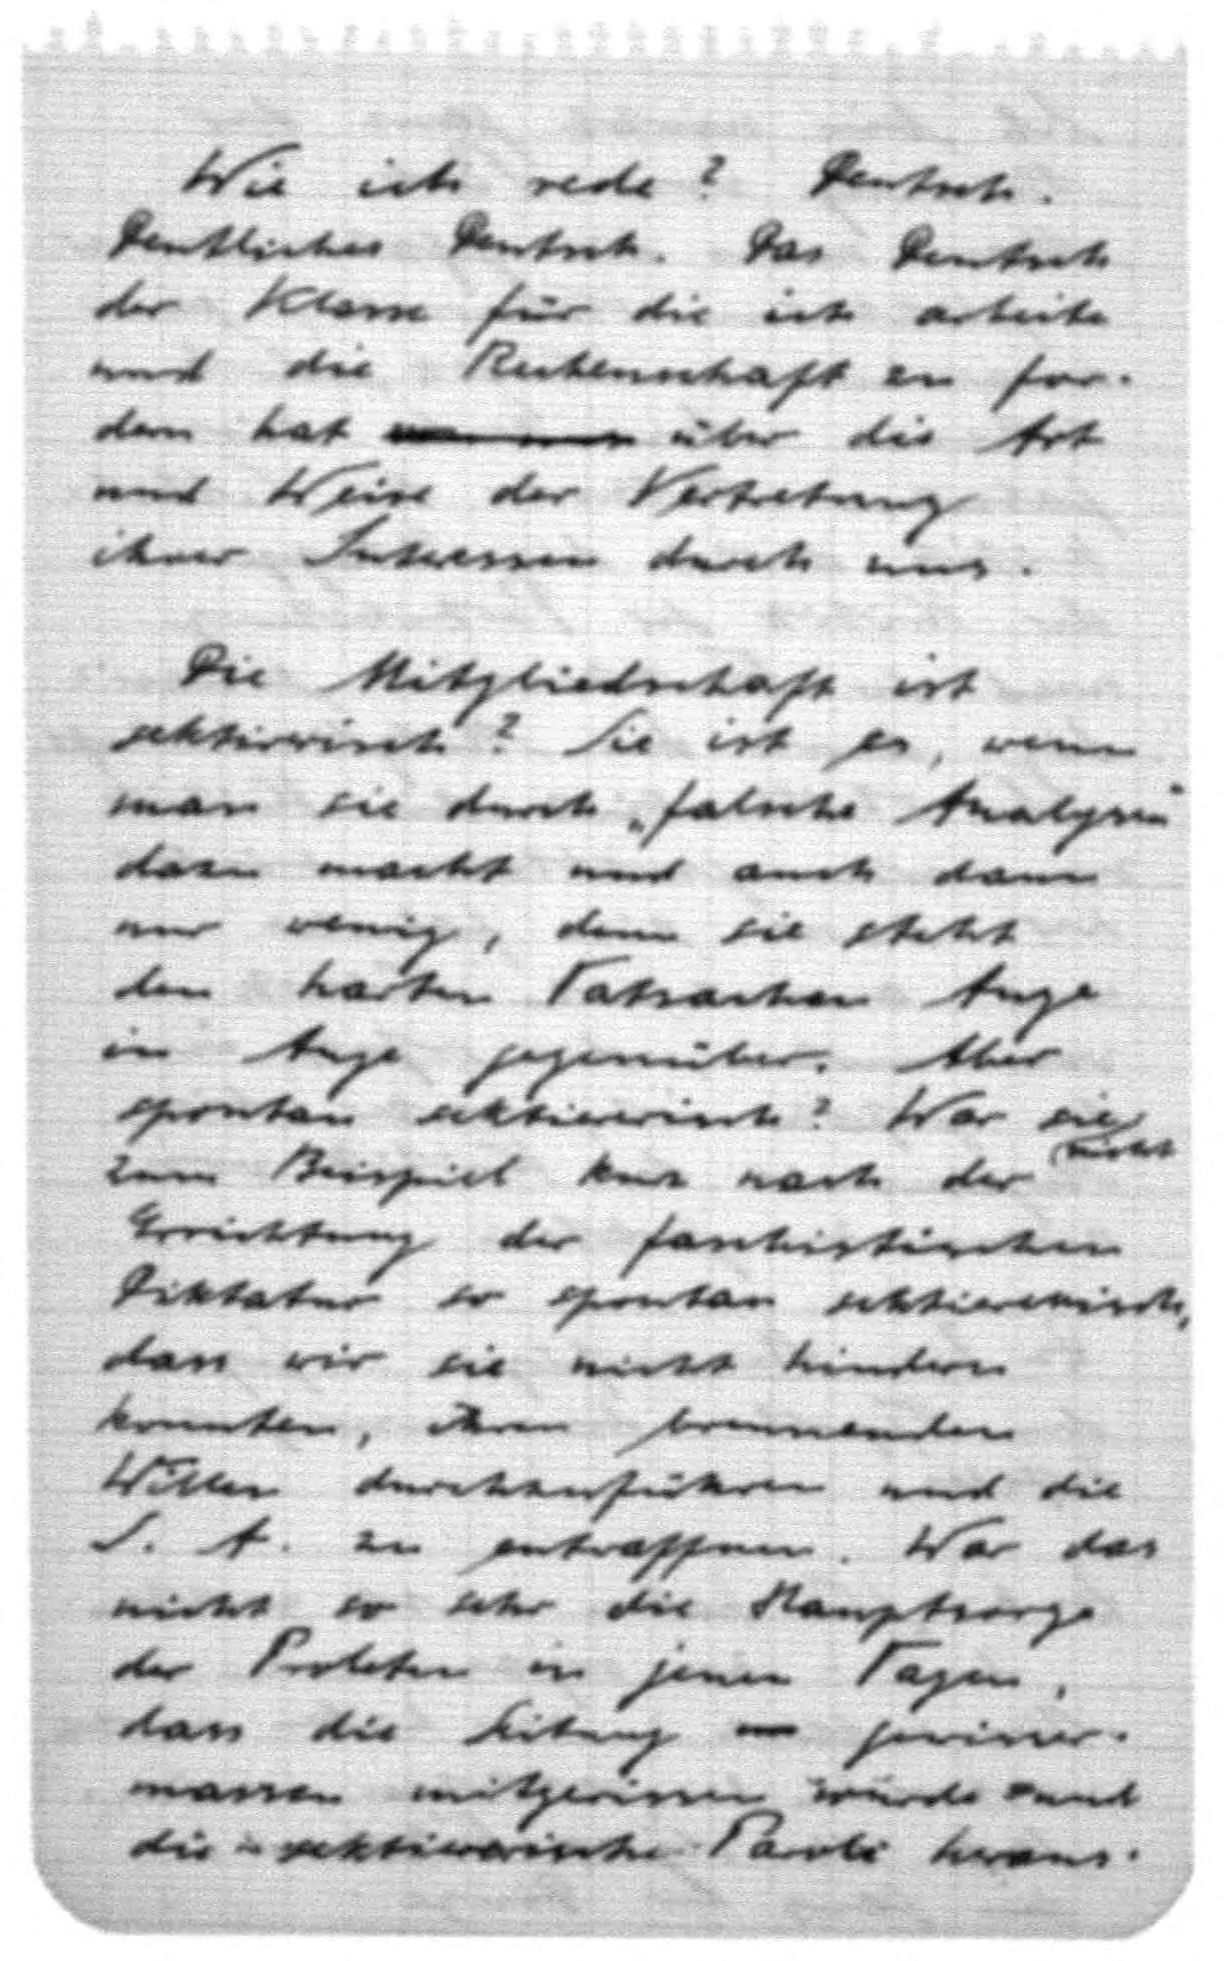 Wie ich rede? Deutsch.
Deutliches Deutsch. Das Deutsch
der Klasse für die ich arbeite
und die Rechenschaft zu for-
dern hat über die Art
und Weise der Vertretung
ihrer Interessen durch uns.
Die Mitgliedschaft ist
sektiererisch? Sie ist es, wenn
man sie durch „falsche Analysen"
dazu macht und auch dann
nur wenig, denn sie steht
den harten Tatsachen Auge
in Auge gegenüber. Aber
spontan sektiererisch? War sie
nicht
zum Beispiel kurz nach der
Errichtung der faschistischen
Diktatur so spontan sektiererisch,
dass wir sie nicht hindern
konnten, ihren brennenden
Willen durchzuführen und die
S. A. zu entwaffnen. War das
nicht so sehr die Hauptsorge
der Proleten in jenen Tagen,
dass die Leitung gewisser-
massen mitgerissen wurde und
die sektiererische Parole heraus-